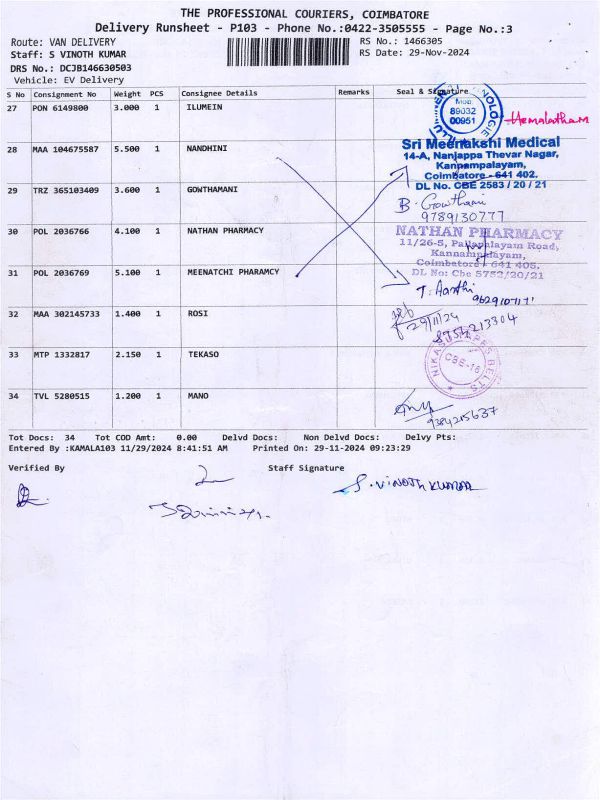 THE PROFESSIONAL COURIERS, COIMBATORE
Delivery Runsheet - P103 - Phone No.:0422-3505555 - Page No.:3
Route: VAN DELIVERY
RS No.: 1466305
Staff: S VINOTH KUMAR
RS Date: 29-Nov-2024
DRS No.: DCJB146630503
Vehicle: EV Delivery
S No Consignment No Weight PCS Consignee Details Remarks Seal & Signature
27 PON 6149800 3.000 1 ILUMEIN
Mob: 89032 00951
Hemalatham
28 MAA 104675587 5.500 1 NANDHINI
Sri Meenakshi Medical
14-A, Nanjappa Thevar Nagar,
Kannampalayam,
Coimbatore - 641 402.
DL No. CBE 2583 / 20 / 21
29 TRZ 365103409 3.600 1 GOWTHAMANI
B. Gowthami
9789130777
30 POL 2036766 4.100 1 NATHAN PHARMACY
NATHAN PHARMACY
11/26-5, Pallapalayam Road,
Kannampalayam,
Coimbatore - 641 405.
DL No: Cbe 5752/20/21
31 POL 2036769 5.100 1 MEENATCHI PHARAMCY
T. Aarthi
32 MAA 302145733 1.400 1 ROSI
29/11/24
33 MTP 1332817 2.150 1 TEKASO
CBE-16
34 TVL 5280515 1.200 1 MANO
9384215637
Tot Docs: 34 Tot COD Amt: 0.00 Delvd Docs: Non Delvd Docs: Delvy Pts:
Entered By :KAMALA103 11/29/2024 8:41:51 AM Printed On: 29-11-2024 09:23:29
Verified By
Staff Signature
S. VINOTH KUMAR